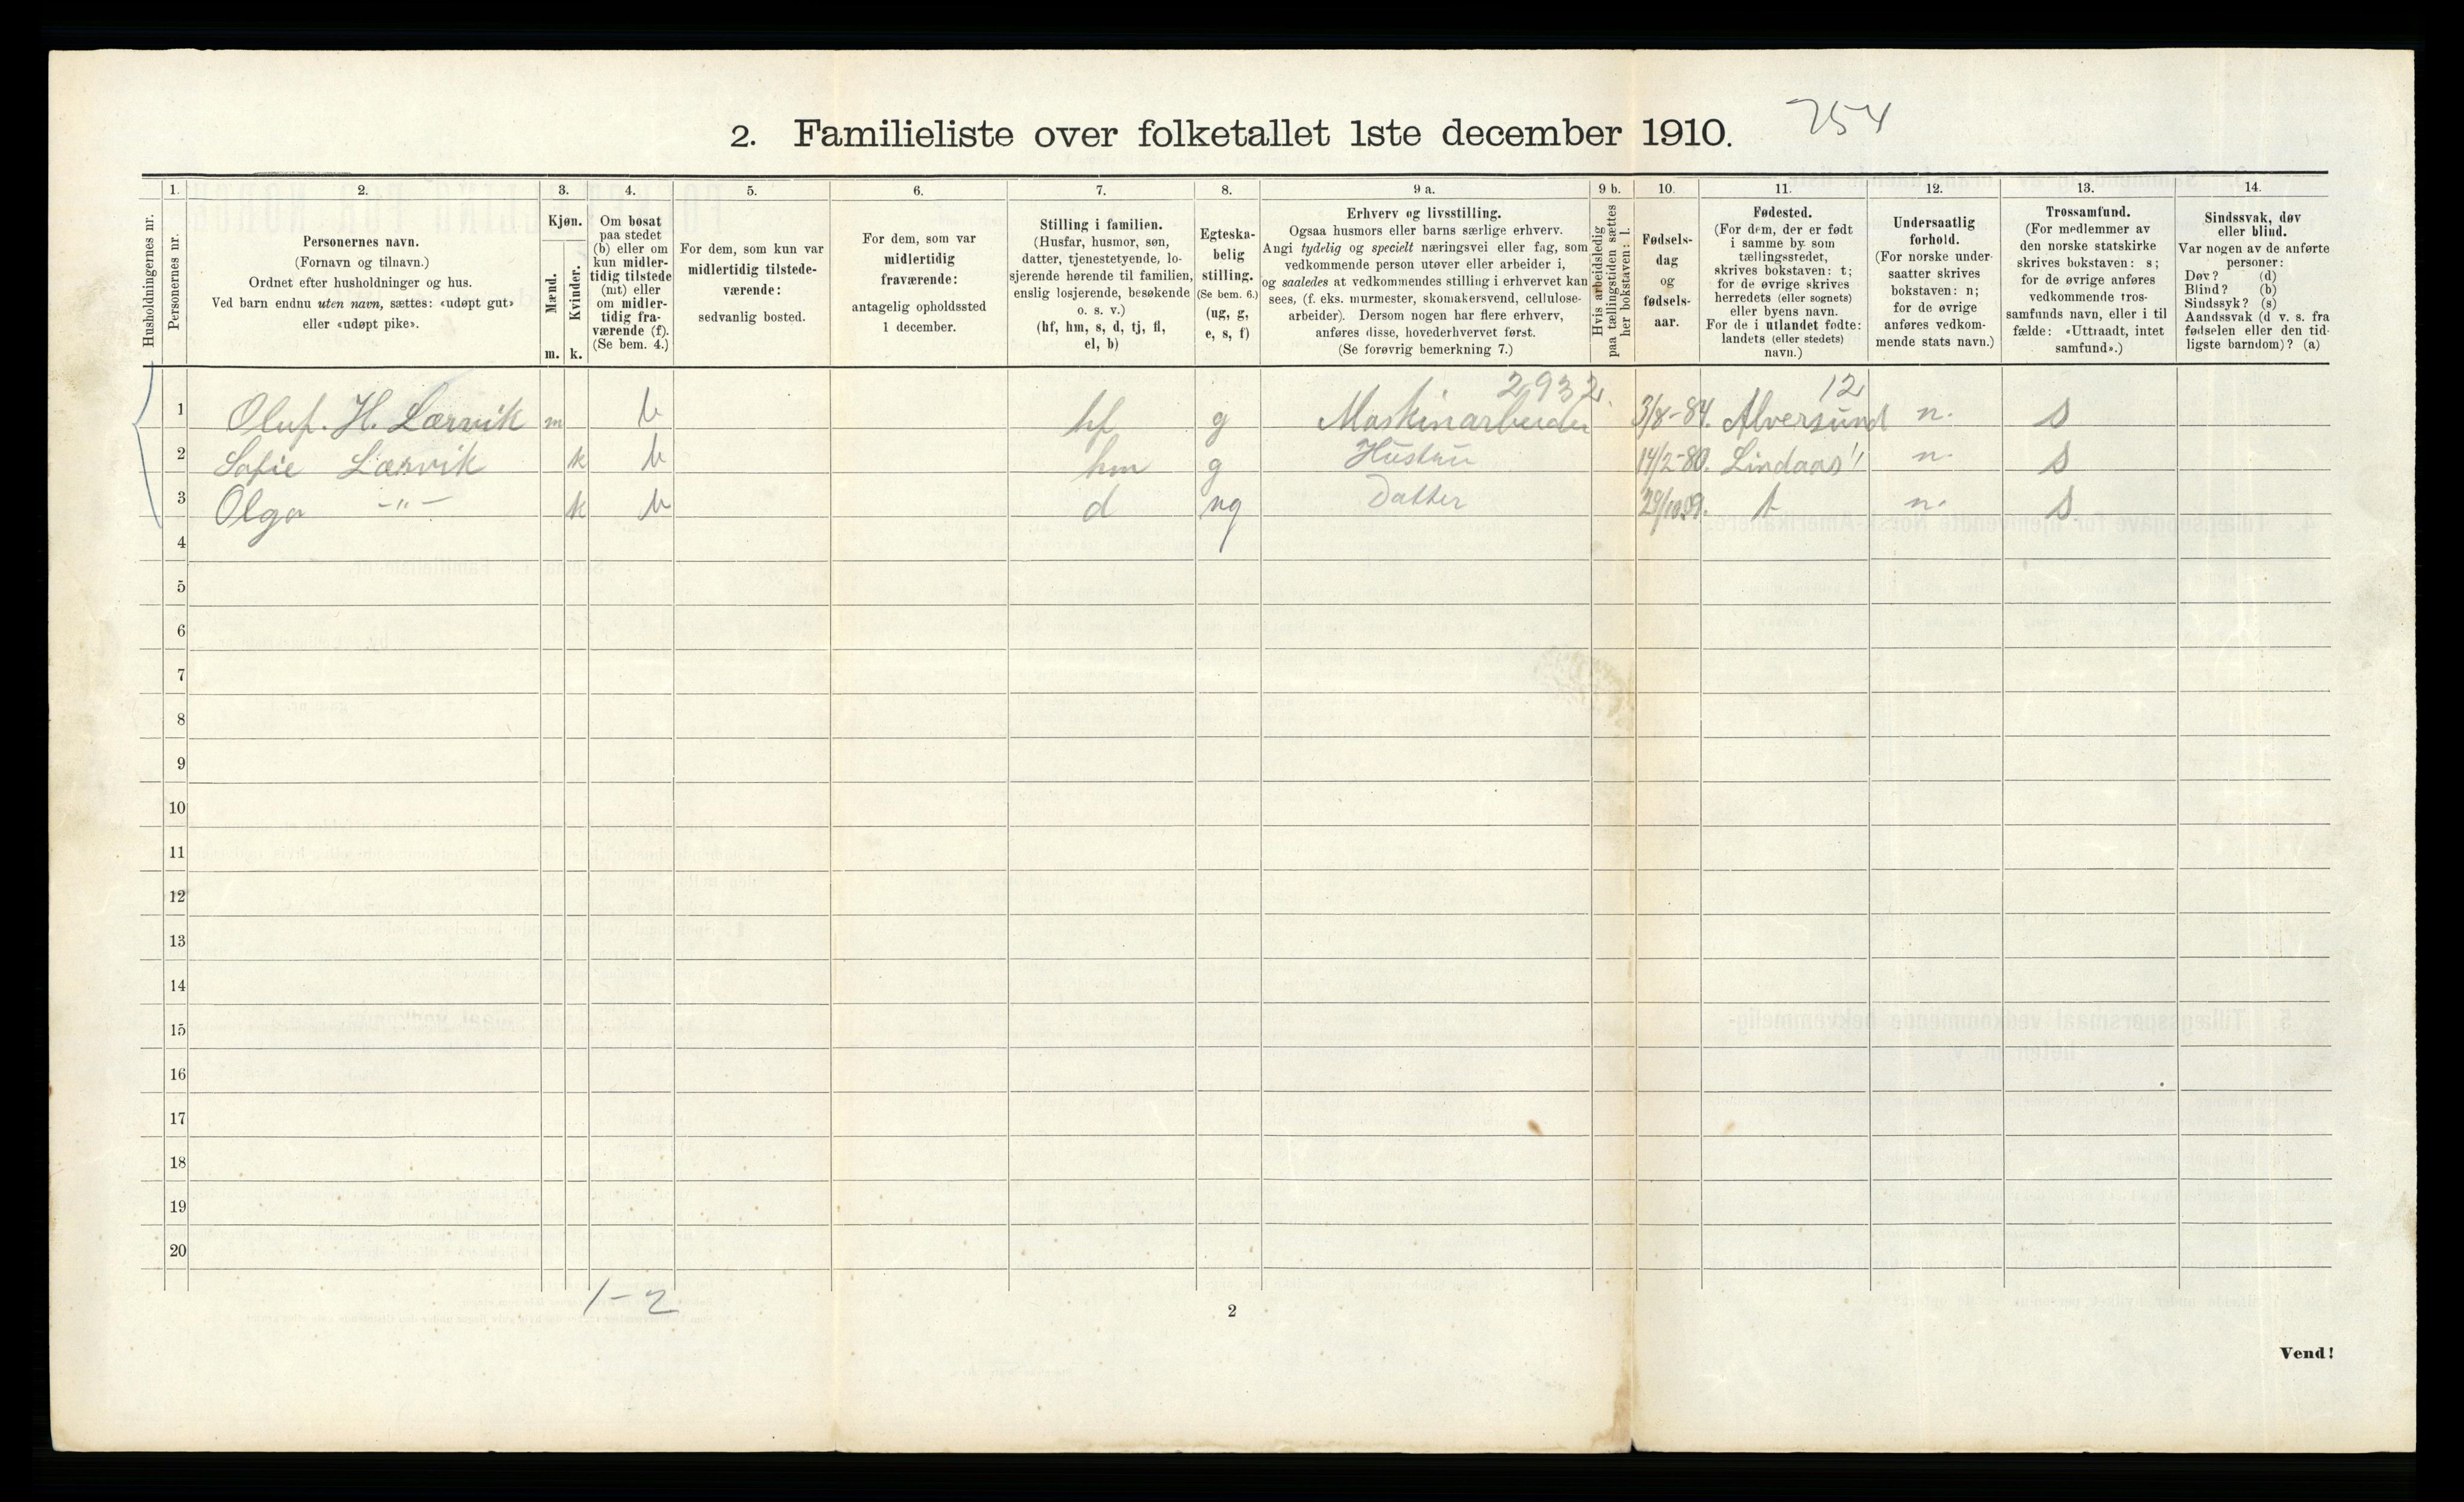 2. Familieliste over folketallet 1ste december 1910. 754
1. 2. 3. 4. 5. 6. 7. 8. 9 a. 9 b. 10. 11. 12. 13. 14.
Husholdningernes nr.
Personernes nr.
Personernes navn.
(Fornavn og tilnavn.)
Ordnet efter husholdninger og hus.
Ved barn endnu uten navn, sættes: «udøpt gut»
eller «udøpt pike».
Kjøn.
Mænd.
Kvinder.
m. k.
Om bosat
paa stedet
(b) eller om
kun midler-
tidig tilstede
(mt) eller
om midler-
tidig fra-
værende (f).
(Se bem. 4.)
For dem, som kun var
midlertidig tilstede-
værende:
sedvanlig bosted.
For dem, som var
midlertidig
fraværende:
antagelig opholdssted
1 december.
Stilling i familien.
(Husfar, husmor, søn,
datter, tjenestetyende, lo-
sjerende hørende til familien,
enslig losjerende, besøkende
o. s. v.)
(hf, hm, s, d, tj, fl,
el, b)
Egteska-
belig
stilling.
(Se bem. 6.)
(ug, g,
e, s, f)
Erhverv og livsstilling.
Ogsaa husmors eller barns særlige erhverv.
Angi tydelig og specielt næringsvei eller fag, som
vedkommende person utøver eller arbeider i,
og saaledes at vedkommendes stilling i erhvervet kan
sees, (f. eks. murmester, skomakersvend, cellulose-
arbeider). Dersom nogen har flere erhverv,
anføres disse, hovederhvervet først.
(Se forøvrig bemerkning 7.)
Hvis arbeidsledig
paa tællingstiden sættes
her bokstaven: l.
Fødsels-
dag
og
fødsels-
aar.
Fødested.
(For dem, der er født
i samme by som
tællingsstedet,
skrives bokstaven: t;
for de øvrige skrives
herredets (eller sognets)
eller byens navn.
For de i utlandet fødte:
landets (eller stedets)
navn.)
Undersaatlig
forhold.
(For norske under-
saatter skrives
bokstaven: n;
for de øvrige
anføres vedkom-
mende stats navn.)
Trossamfund.
(For medlemmer av
den norske statskirke
skrives bokstaven: s;
for de øvrige anføres
vedkommende tros-
samfunds navn, eller i til
fælde: «Uttraadt, intet
samfund».)
Sindssvak, døv
eller blind.
Var nogen av de anførte
personer:
Døv? (d)
Blind? (b)
Sindssyk? (s)
Aandssvak (d v. s. fra
fødselen eller den tid-
ligste barndom)? (a)
2932. 12
1 Oluf. H. Lærvik m b hf g Maskinarbeider 3/8-84. Alversund n. s
2 Sofie Lærvik k b hm g Hustru 14/2-80. Lindaas " n. s
3 Olga -"- k b d ug Datter 29/10 09. t n. s
4
5
6
7
8
9
10
11
12
13
14
15
16
17
18
19
20
1-2
2
Vend!